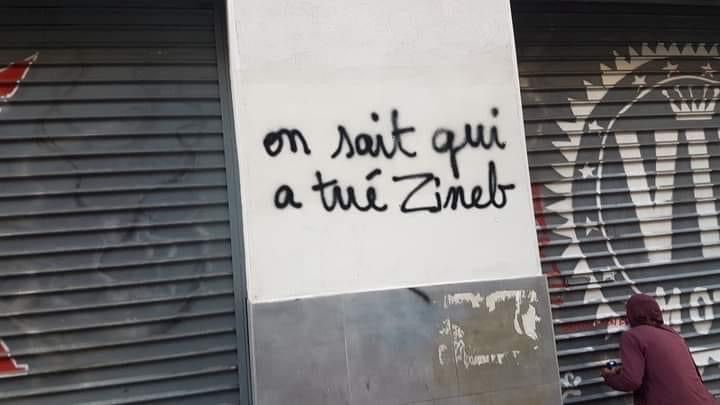 on sait qui
a tué Zineb
VI
MO